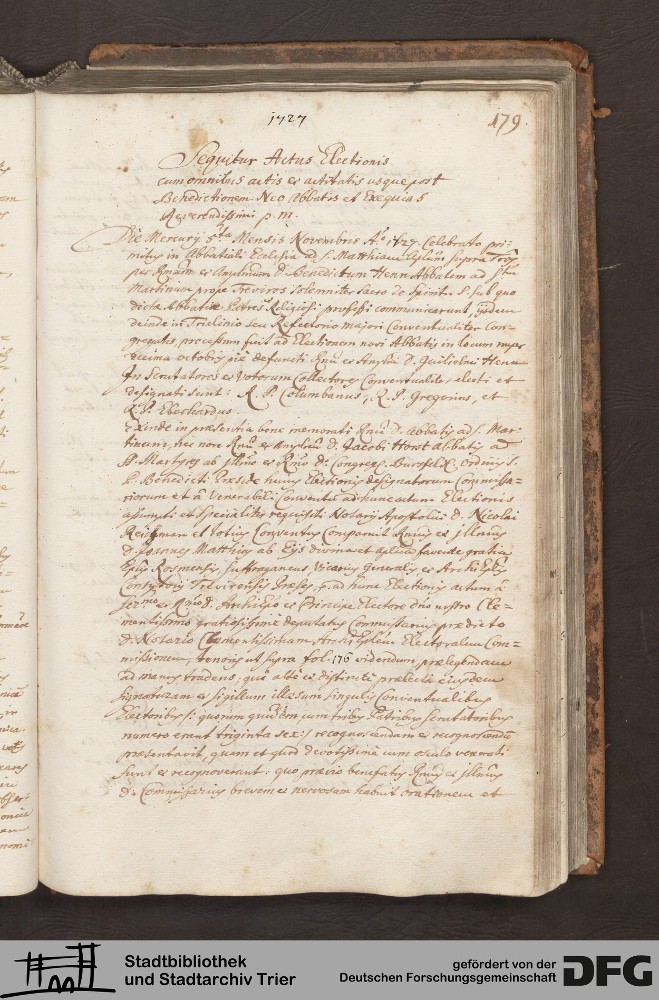 1727
179.
Sequitur Actus Electionis
cum omnibus actis et actitatis usque post
Benedictionem Neo Abbatis et Exequias
Reverendissimi p. m.
Die Mercurij 5ta Mensis Novembris Ao 1727 Celebrato pri-
mitus in Abbatiali Ecclesia ad S. Matthiam supra
per Rndum et Amplmum D. Benedictum Henn Abbatem ad Stum
Martinum prope Treviros solemniter sacro de Spiritu S. sub quo
dictae Abbatiae Patres Religiosi professi communicarunt, ijsdem
deinde in Triclinio seu Refectorio majori Conventualiter Con-
gregatis, processum fuit ad Electionem novi Abbatis in locum nuper
octobris pie defuncti Rmi et Amplmi D. Guilielmi Henn
In Scrutatores et Votorum Collectores Conventualiter electi et
designati sunt: R. P. Columbanus, R. P. Gregorius, et
R. P. Eberhardus.
Exinde in praesentia bene memorati Rmi D. Abbatis ad S. Mar-
tinum, nec non Rmi et Amplmi D. Jacobi Horst Abbatis ad
B. Martyres ab Illmo et Rmo D. Congreg. Bursfeld. Ordinis S.
P. Benedicti Praeside hujus Electionis designatorum Commissa-
riorum et a Venerabili Conventu ad hunc actum Electionis
assumpti et specialiter requisiti Notarij Apostolici D. Nicolai
Reichman et totius Conventus Comparuit Rmus et Illmus
D. Joannes Matthias ab Eys divina et aplica favente gratia
Epus Rosmensis, Suffraganeus Vicarius Generalis et Archi Eplis
Consistorij Trevirensis Praeses, ad hunc Electionis actum a
Sermo et Rmo D. Archiepo et Principe Electore dno nostro Cle-
mentissimo gratiosissime deputatus Commissarius praedicto
D. Notario Clementissimam Archi Eplem Electoralem Com-
missionem, tenoris ut supra fol. 176 videndum praelegendam
ad manus tradens, qui alte et distincte praelecta ejusdem
signaturam et sigillum illaesum singulis Conventualibus
Electoribus (: quorum quidem cum tribus Patribus scrutatoribus
numero erant triginta sex :) recognoscendam et recognoscendum
praesentavit, quam et quod devotissime cum osculo venerati
sunt et recognoverunt: quo praevio benefatus Rmus et Illmus
D. Commissarius brevem et nervosam habuit orationem et
Stadtbibliothek
und Stadtarchiv Trier
gefördert von der
Deutschen Forschungsgemeinschaft
DFG